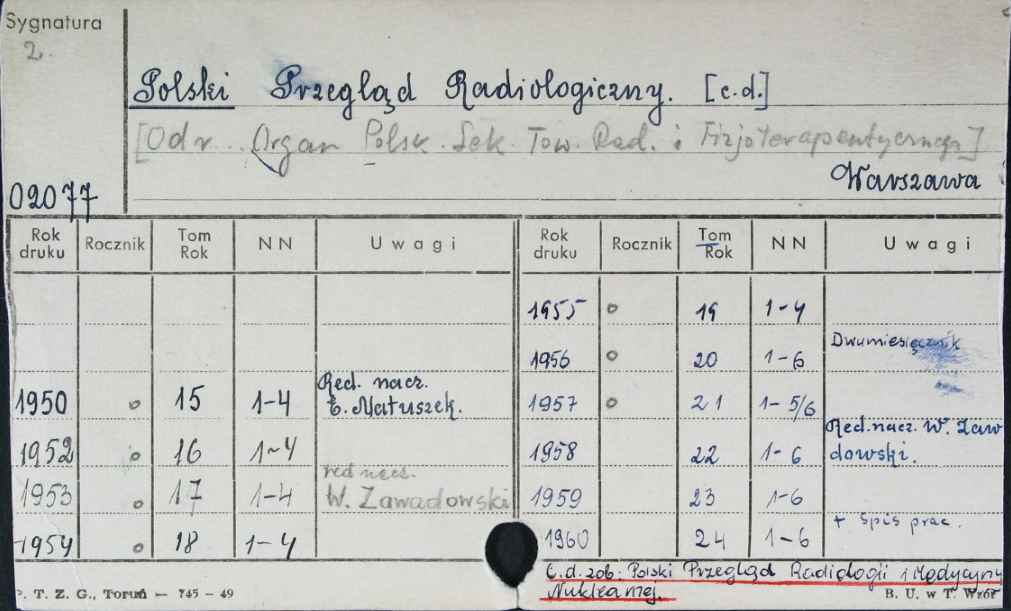 Sygnatura
2.
Polski Przegląd Radiologiczny. [c.d.]
[Od r... Organ Polsk. Lek. Tow. Rad. i Fizjoterapeutycznego]
Warszawa
02077
Rok druku Rocznik Tom Rok NN Uwagi
1950 o 15 1-4 Red. nacz. E. Matuszek.
1952 o 16 1-4
1953 o 17 1-4 red nacz. W. Zawadowski
1954 o 18 1-4
Rok druku Rocznik Tom Rok NN Uwagi
1955 o 19 1-4
1956 o 20 1-6 Dwumiesięcznik
1957 o 21 1-5/6
1958 22 1-6 Red. nacz. W. Zawadowski.
1959 23 1-6
1960 24 1-6 + spis prac.
C.d. zob. Polski Przegląd Radiologii i Medycyny
Nuklearnej.
P. T. Z. G., Toruń — 745 - 49
B. U. w T. Wzór